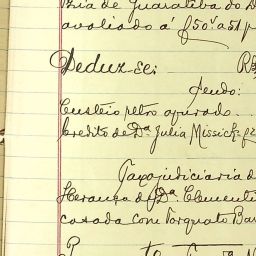 zia de Guaratiba do D
avaliado á f50v a 51 p
Deduz-se:
Sendo:
Custeio retro apurado
Credito de Da Julia Missick f2
Taxa judiciaria d
Herança de Da Clementi
casada com Torquato Bar